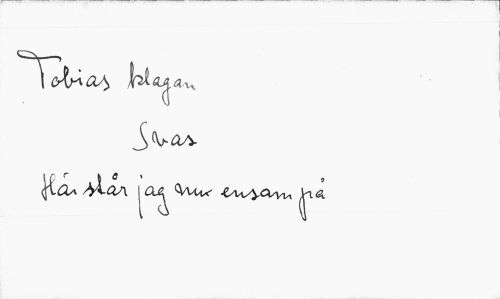 Tobias klagan
Svar
Här står jag nu ensam på